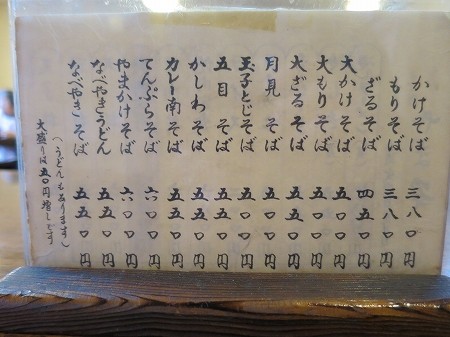 かけそば 三八〇円
もりそば 三八〇円
ざるそば 四五〇円
大かけそば 五〇〇円
大もりそば 五〇〇円
大ざるそば 五五〇円
月見そば 五〇〇円
玉子とじそば 五〇〇円
五目そば 五五〇円
かしわそば 五五〇円
カレー南そば 五五〇円
てんぷらそば 六〇〇円
やまかけそば 六〇〇円
なべやきうどん 五五〇円
なべやきそば 五五〇円
(うどんもあります)
大盛りは五〇円増しです